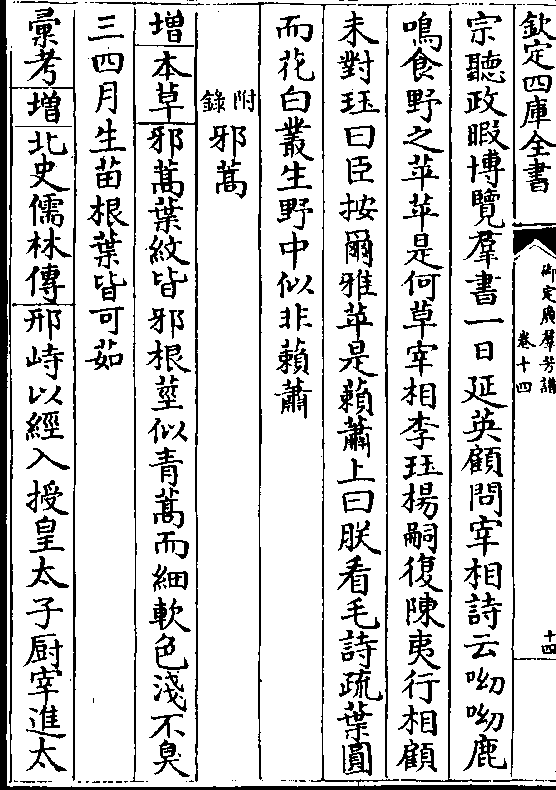 欽定四庫全書
御定廣羣芳譜
卷十四
十四
宗聽政暇博覽羣書一日延英顧問宰相詩云呦呦鹿
鳴食野之苹苹是何草宰相李珏楊嗣復陳夷行相顧
未對珏曰臣按爾雅苹是藾蕭上曰朕看毛詩疏葉圓
而花白叢生野中似非藾蕭
附錄邪蒿
增本草邪蒿葉紋皆邪根莖似青蒿而細軟色淺不臭
三四月生苗根葉皆可茹
彙考增北史儒林傳邢峙以經入授皇太子厨宰進太